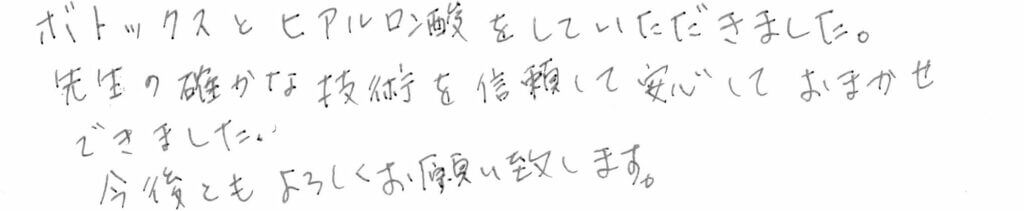 ボトックスとヒアルロン酸をしていただきました。
先生の確かな技術を信頼して安心しておまかせ
できました。
今後ともよろしくお願い致します。